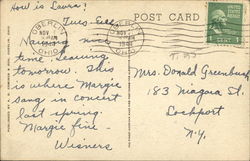 How is Laura?
Tues. Eve.
POST CARD
OBERLIN
NOV
OHIO
Having nice
time, leaving
tomorrow. This
is where Margie
sang in concert
last spring.
Margie fine.
Wisners
Mrs. Donald Greenburg
183 Niagara St.
Lockport
N.Y.